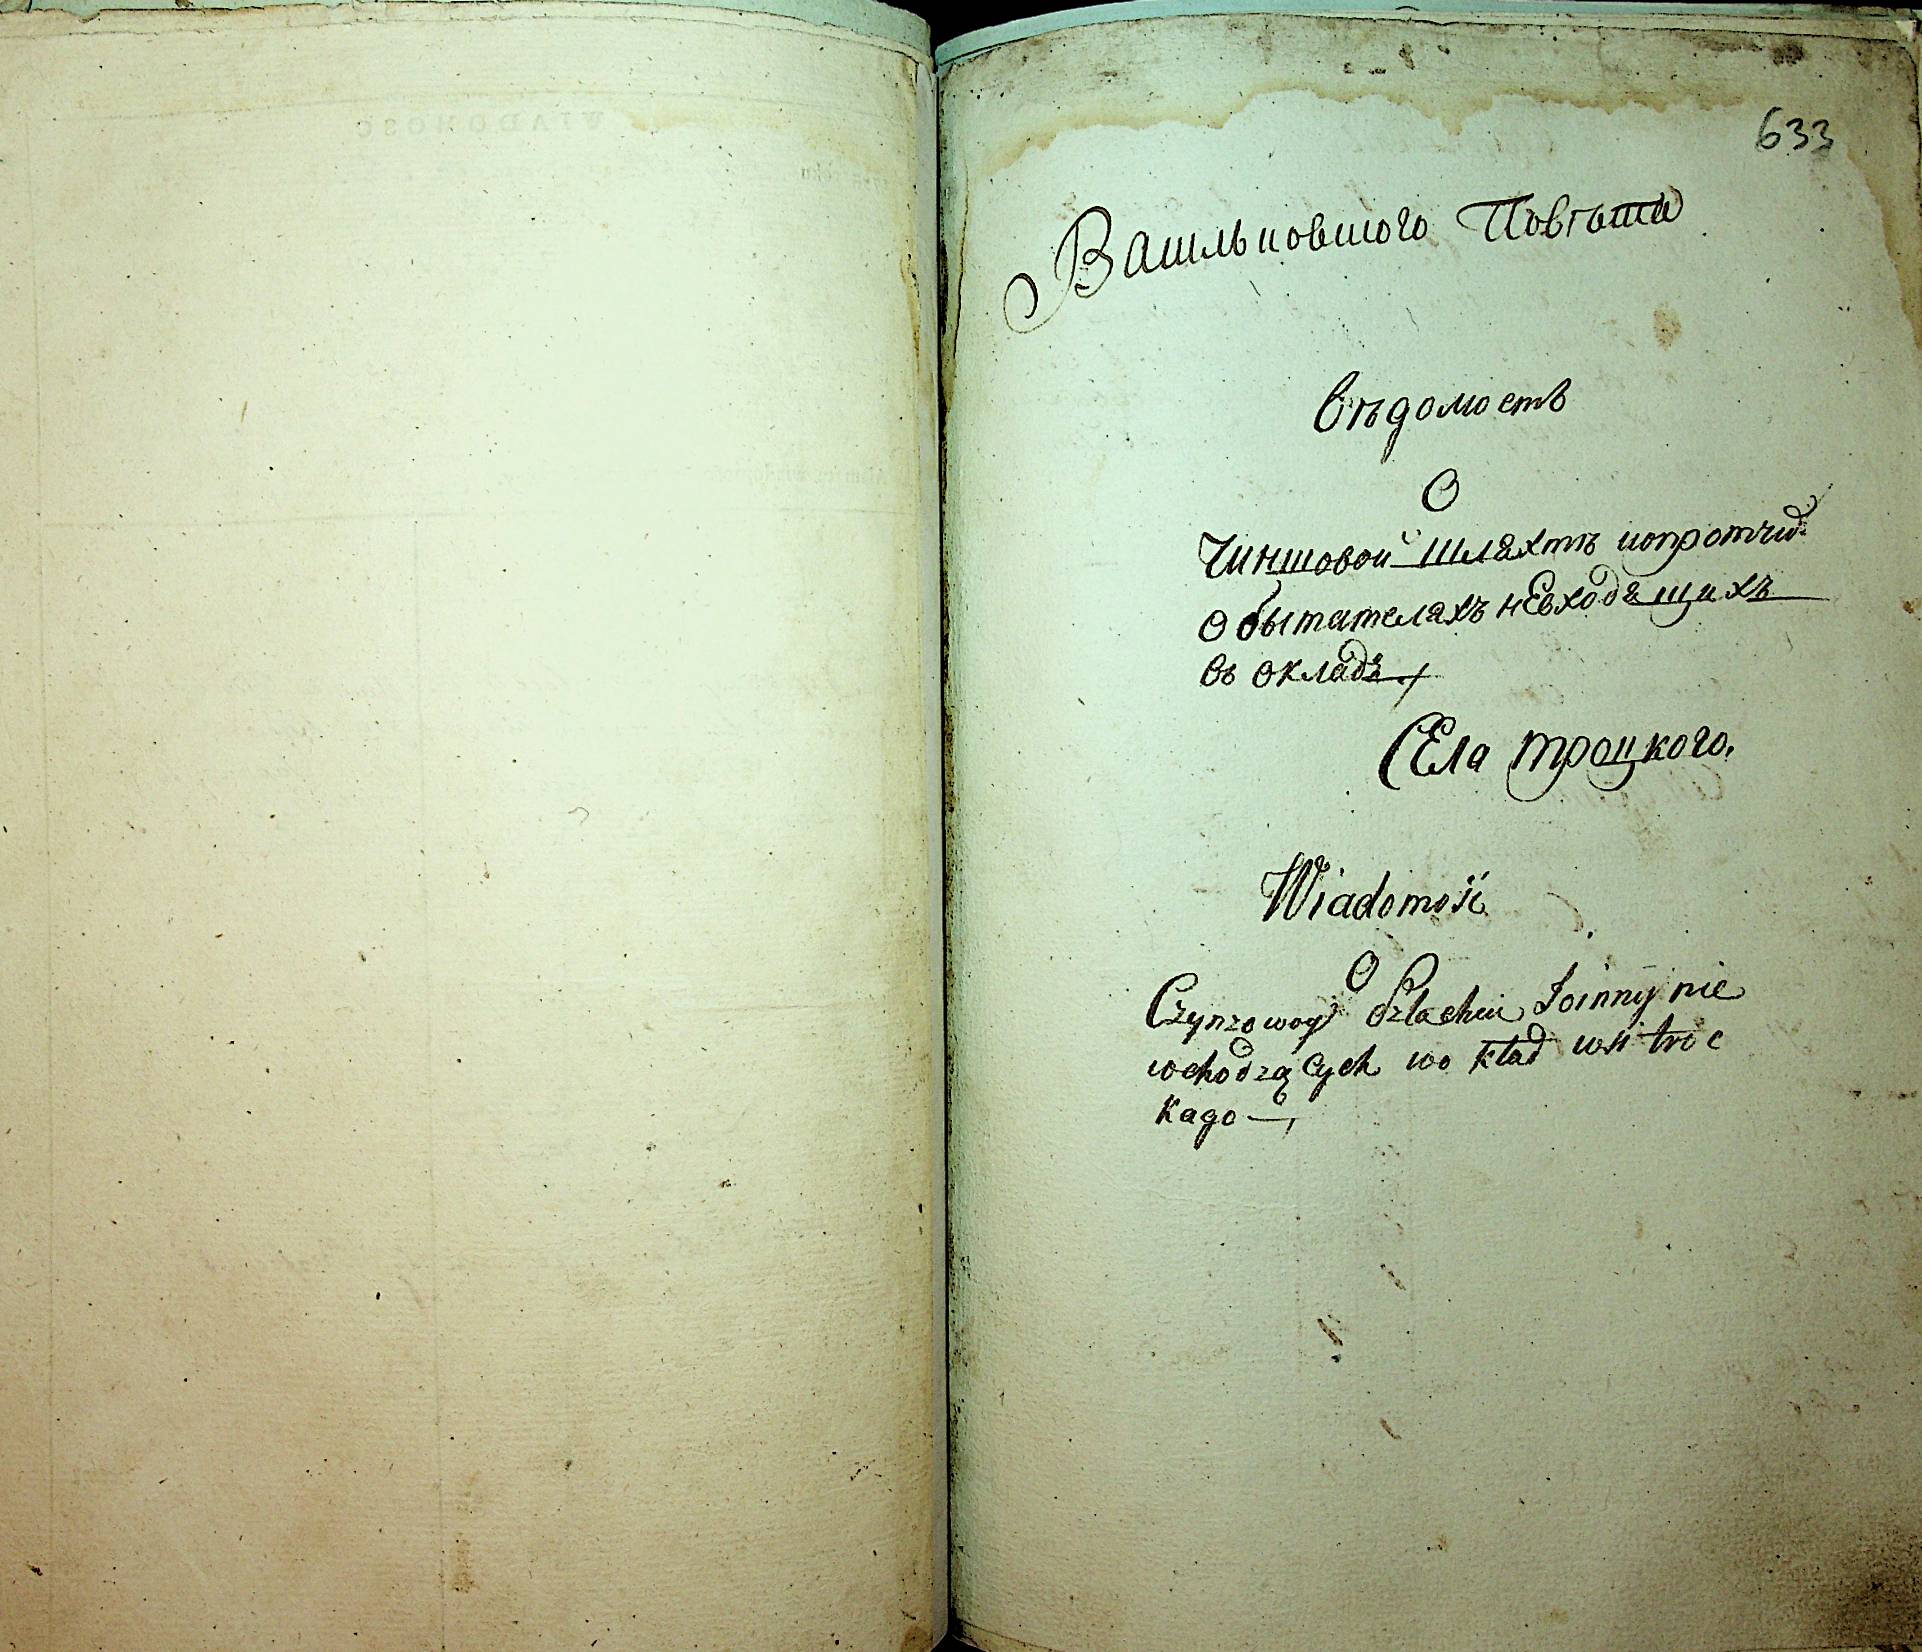 633
Вашльковшого Повѣта
Вѣдомость
О
Чиншовой шляхтѣ ипротчид:
Обытателяхъ нЕвходящихъ
въ окладъ
СЕла троцкого.
Wiadomość
O
Czynzowoy Szlachcie Joinny nie
wchodzących wo kład wsi troc
kago
WIADOMOSC